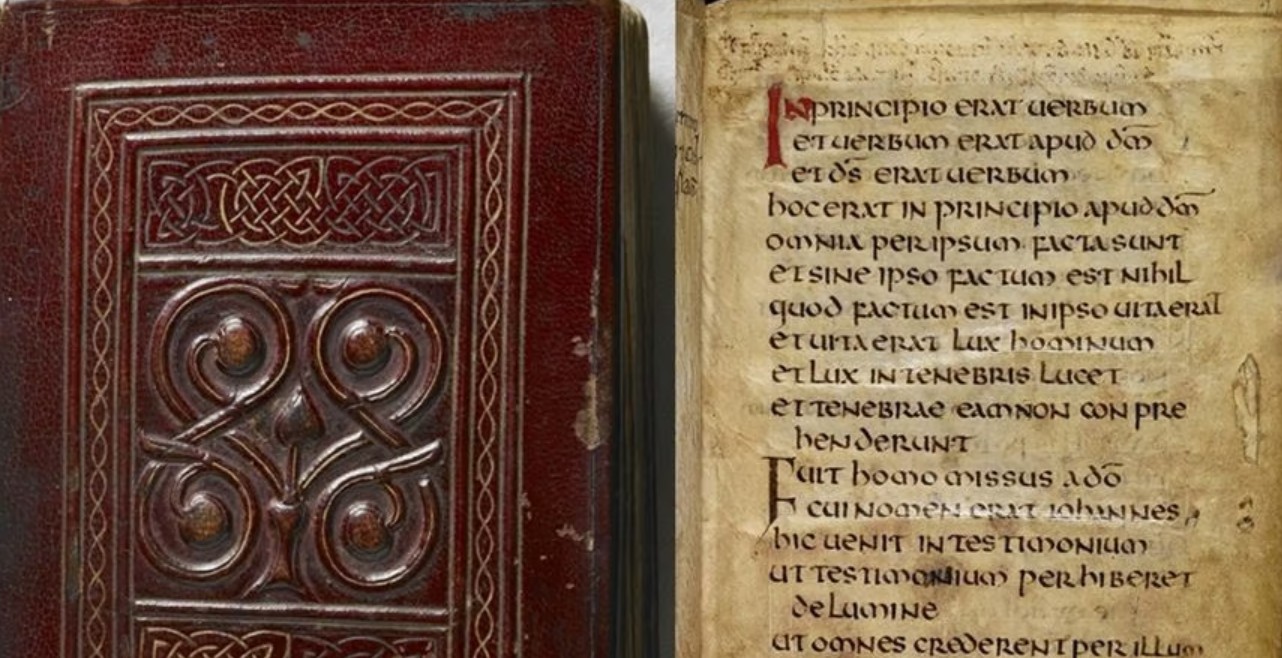 IN PRINCIPIO ERAT UERBUM
ET UERBUM ERAT APUD dm̄
ET ds̄ ERAT UERBUM
hOC ERAT IN PRINCIPIO APUD dm̄
OMNIA PER IPSUM FACTA SUNT
ET SINE IPSO FACTUM EST NIhIL
QUOD FACTUM EST IN IPSO UITA ERAT
ET UITA ERAT LUX hOMINUM
ET LUX IN TENEBRIS LUCET
ET TENEBRAE EAM NON CONPRE
hENDERUNT
FUIT hOMO MISSUS A dō
CUI NOMEN ERAT IOhANNES
hIC UENIT IN TESTIMONIUM
UT TESTIMONIUM PERhIBERET
DE LUMINE
UT OMNES CREDERENT PER ILLUM